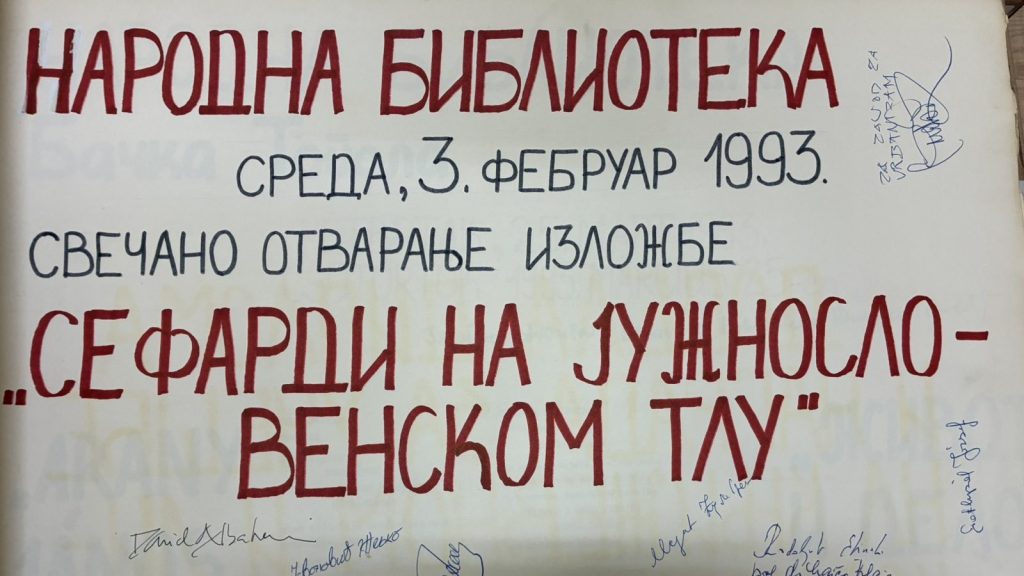 НАРОДНА БИБЛИОТЕКА
СРЕДА, 3. ФЕБРУАР 1993.
СВЕЧАНО ОТВАРАЊЕ ИЗЛОЖБЕ
„СЕФАРДИ НА ЈУЖНОСЛО-
ВЕНСКОМ ТЛУ"
David Albahari